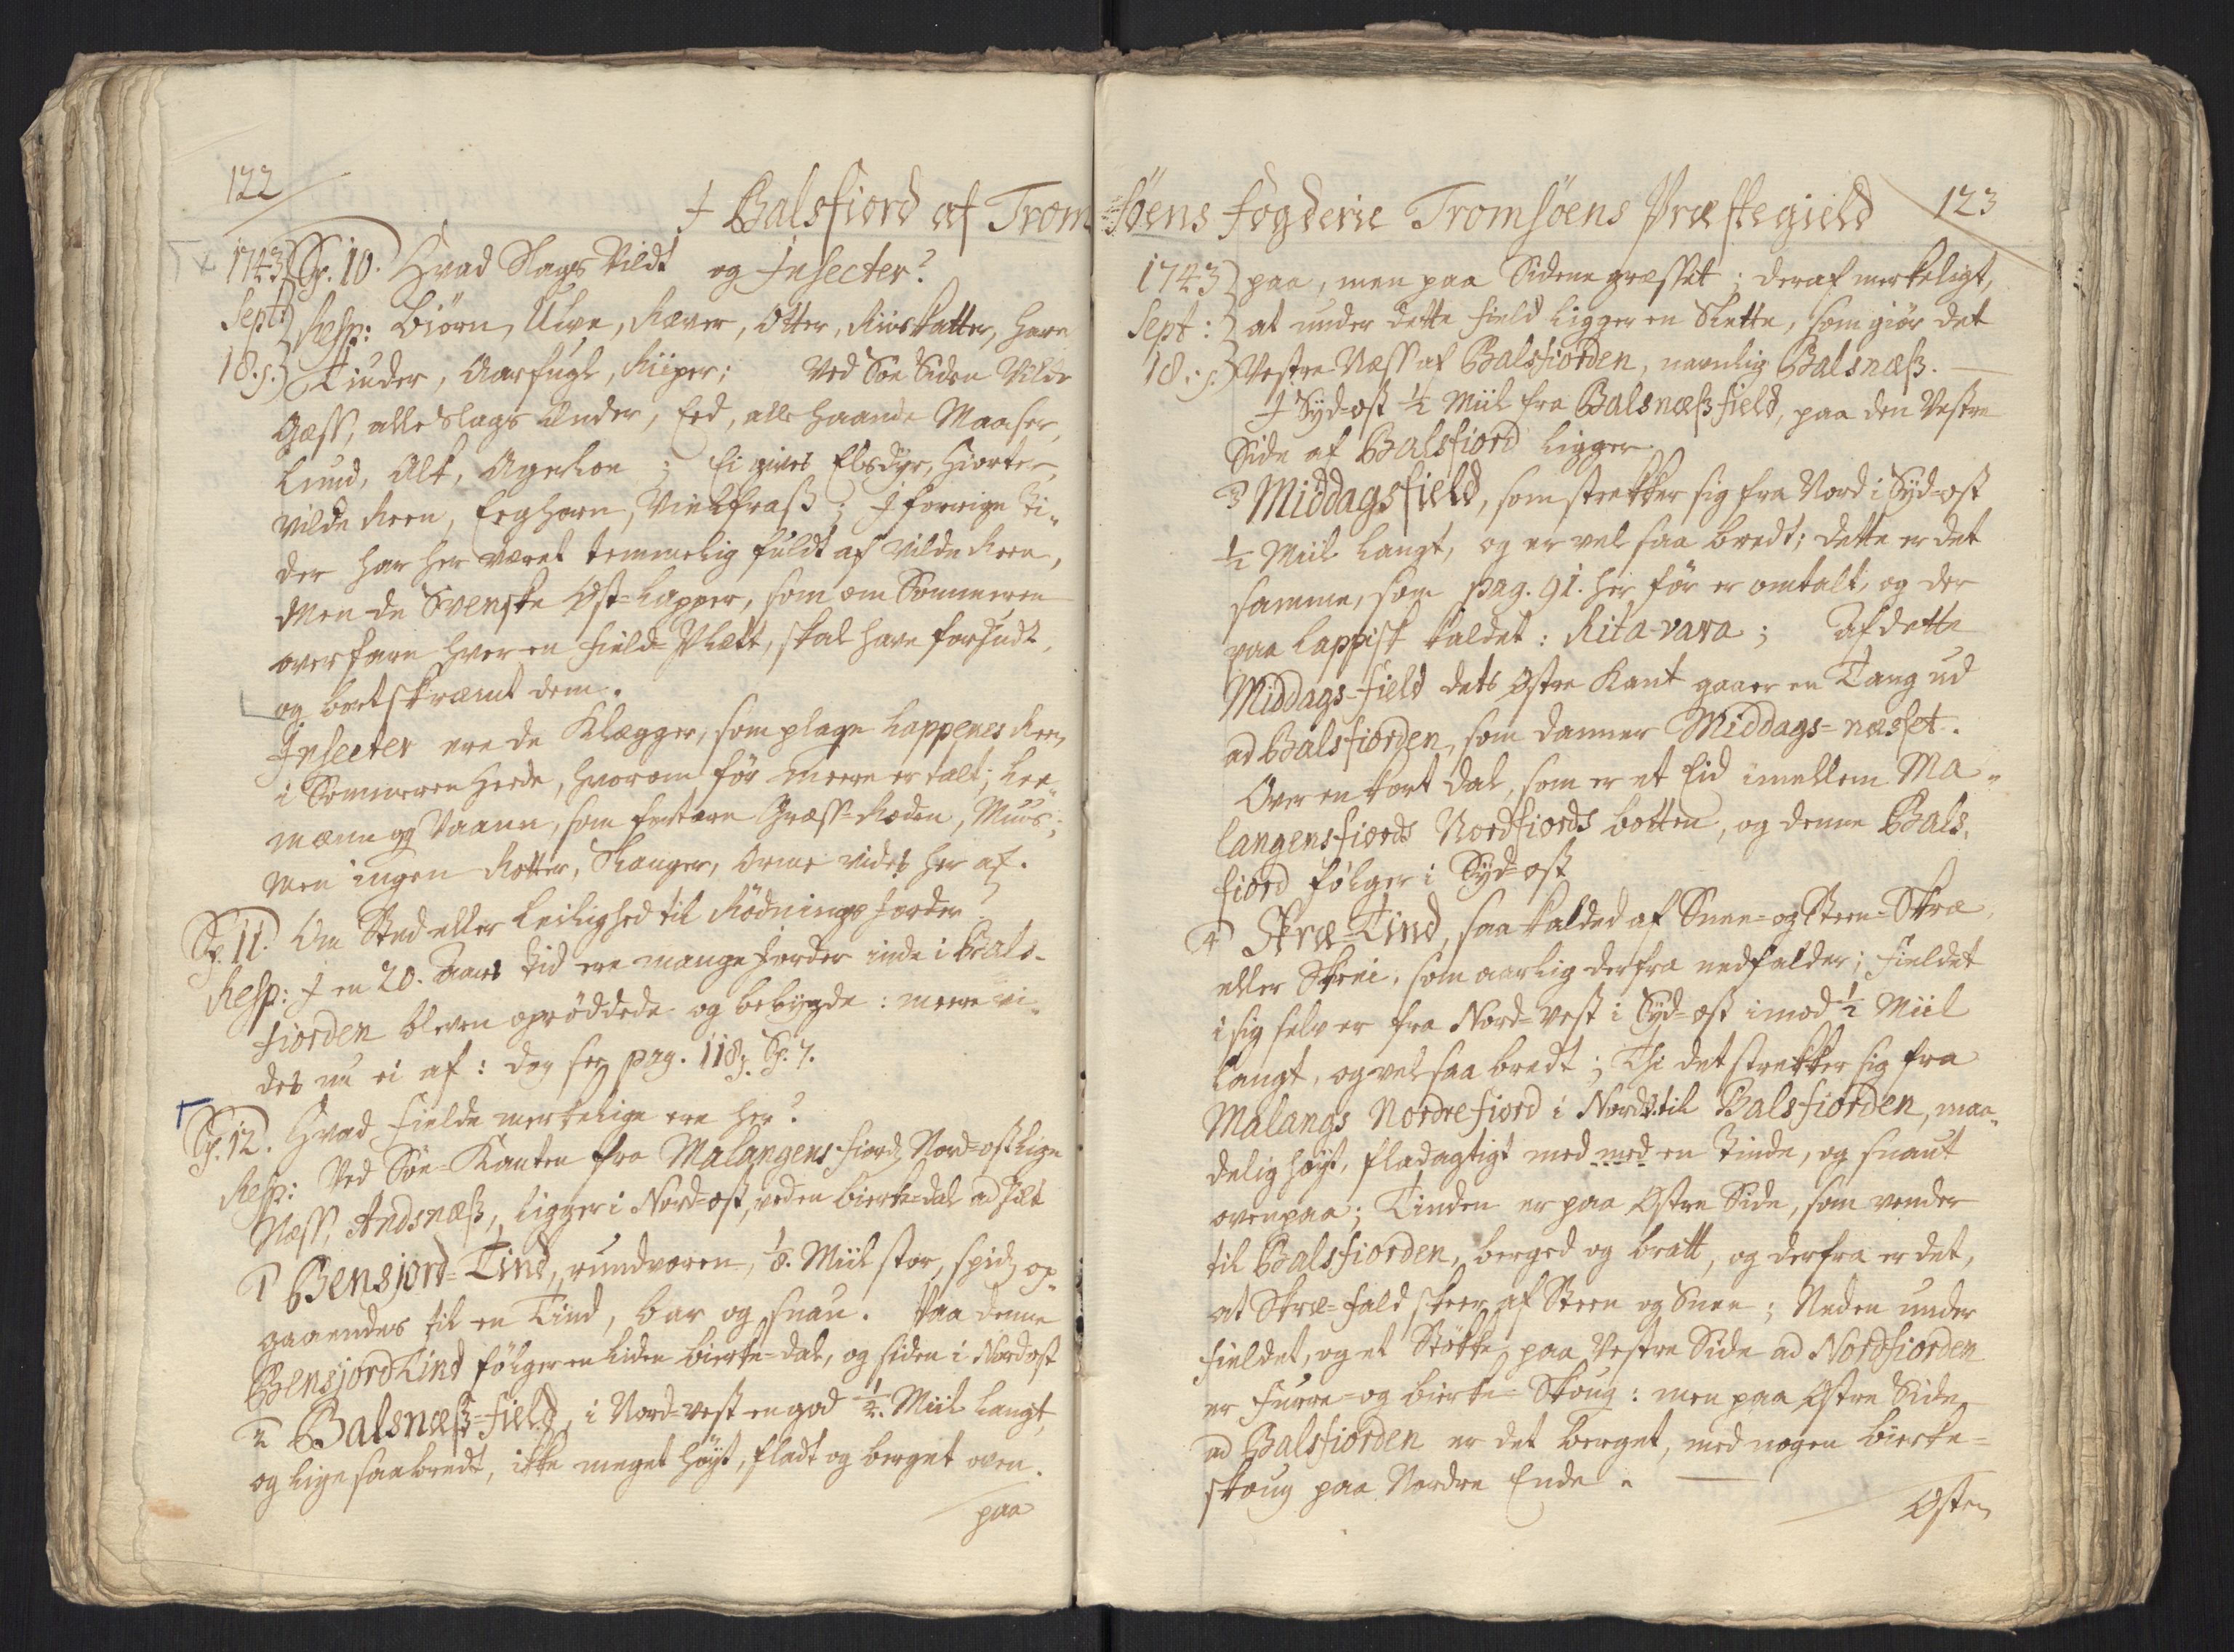 122
I Balsfiord af Trom-
1743 Sp. 10. Hvad Slags Vildt og Insecter?
Sept: Resp: Biörn, Ulve, Ræver, Otter, Röiskatter, Hare
18. s. Tiuder, Aarfugl, Riiper; Ved Söe Siden Vilde
Gæss, alle Slags Ænder, Eed, alle haande Maaser,
Lund, Alk, Ageloe; Ei gives Elsdyr, Hiorter,
vilde Reen, Eeghorn, Vielfraß; I forrige Ti-
der har her været temmelig fuldt af vilde Reen,
Men de Svenske Ost-Lapper, som om Sommeren
overfare hver en Field-Plætt, skal have forjudt,
og bortskræmt dem.
Insecter ere de Klægger, som plage Lappenes Reen
i Sommeren Heede, hvorom för meere er talt; Lee-
mænn og Vaann, som fortære Græss-Roden, Muus;
Men ingen Rotter, Slanger, Orme vides her af.
Sp. 11. Om Sted eller Leilighed til Rödnings Jorder?
Resp: I en 20. Aars Tid ere mange Jorder inde i Bals-
fiorden bleven opröddede og bebygde: meere vi-
des nu ei af: dog see pag. 118, Sp. 7.
Sp. 12. Hvad Fielde merkelige ere her?
Resp: Ved Söe-Kanten fra Malangens fiords Nord-ostlige
Næss, Andsnæß, ligger i Nord-ost, ved en bierke-dal adskilt
1 Bensjord-Tind, rundvoren, 1/8. Miil stor, spids op-
gaaendes til en Tind, bar og snau. Paa denne
Bensjord Tind fölger en liden bierke-dal, og siden i Nordost
2 Balsnæß-Field, i Nord-vest en god 1/4. Miil langt,
og lige saa bredt, ikke meget höyt, fladt og berget oven
paa
-söens Fogderie Tromsöens Præstegield 123
1743 paa, men paa Sidene græsset; deraf merkeligt,
Sept: at under dette Field ligger en Slette, som giör det
18. s. Vestre Næss af Balsfiorden, navnlig Balsnæß.
I Syd-ost 1/2 Miil fra Balsnæß field, paa den Vestre
Side af Balsfiord ligger
3 Middagsfield, som strekker sig fra Nord i Syd-ost
1/2 Miil langt, og er vel saa bredt; dette er det
samme, som pag. 91. her för er omtalt, og der
paa Lappisk kaldet: Rita-vara; Af dette
Middags-field dets Ostre Kant gaaer en Tang ud
ad Balsfiorden, som danner Middags-næsset.
Over en kort Dal, som er et Eid imellem Ma-
langensfiords Nordfiords botten, og denne Bals-
fiord fölger i Syd-ost
4 Skræ-Tind, saa kalded af Snee- og Steen-Skræ,
eller Skrei, som aarlig derfra nedfalder; Fieldet
i sig selv er fra Nord-vest i Syd-ost imod 1/2 Miil
langt, og vel saa bredt; Thi det strekker sig fra
Malangs Nordrefiord i Nordost til Balsfiorden, maa-
delig höyt, fladagtigt med med en Tinde, og snaut
ovenpaa; Tinden er paa Ostre Side, som vender
til Balsfiorden, berged og bratt, og derfra er det,
at Skræ-fald skeer af Steen og Snee; Neden under
Fieldet, og et Stökke paa Vestre Side ad Nordfiorden
er Furre- og bierke-Skoug: men paa Ostre Side
ad Balsfiorden er det berget, med nogen bierke-
skoug paa Nordre Ende.
Osten